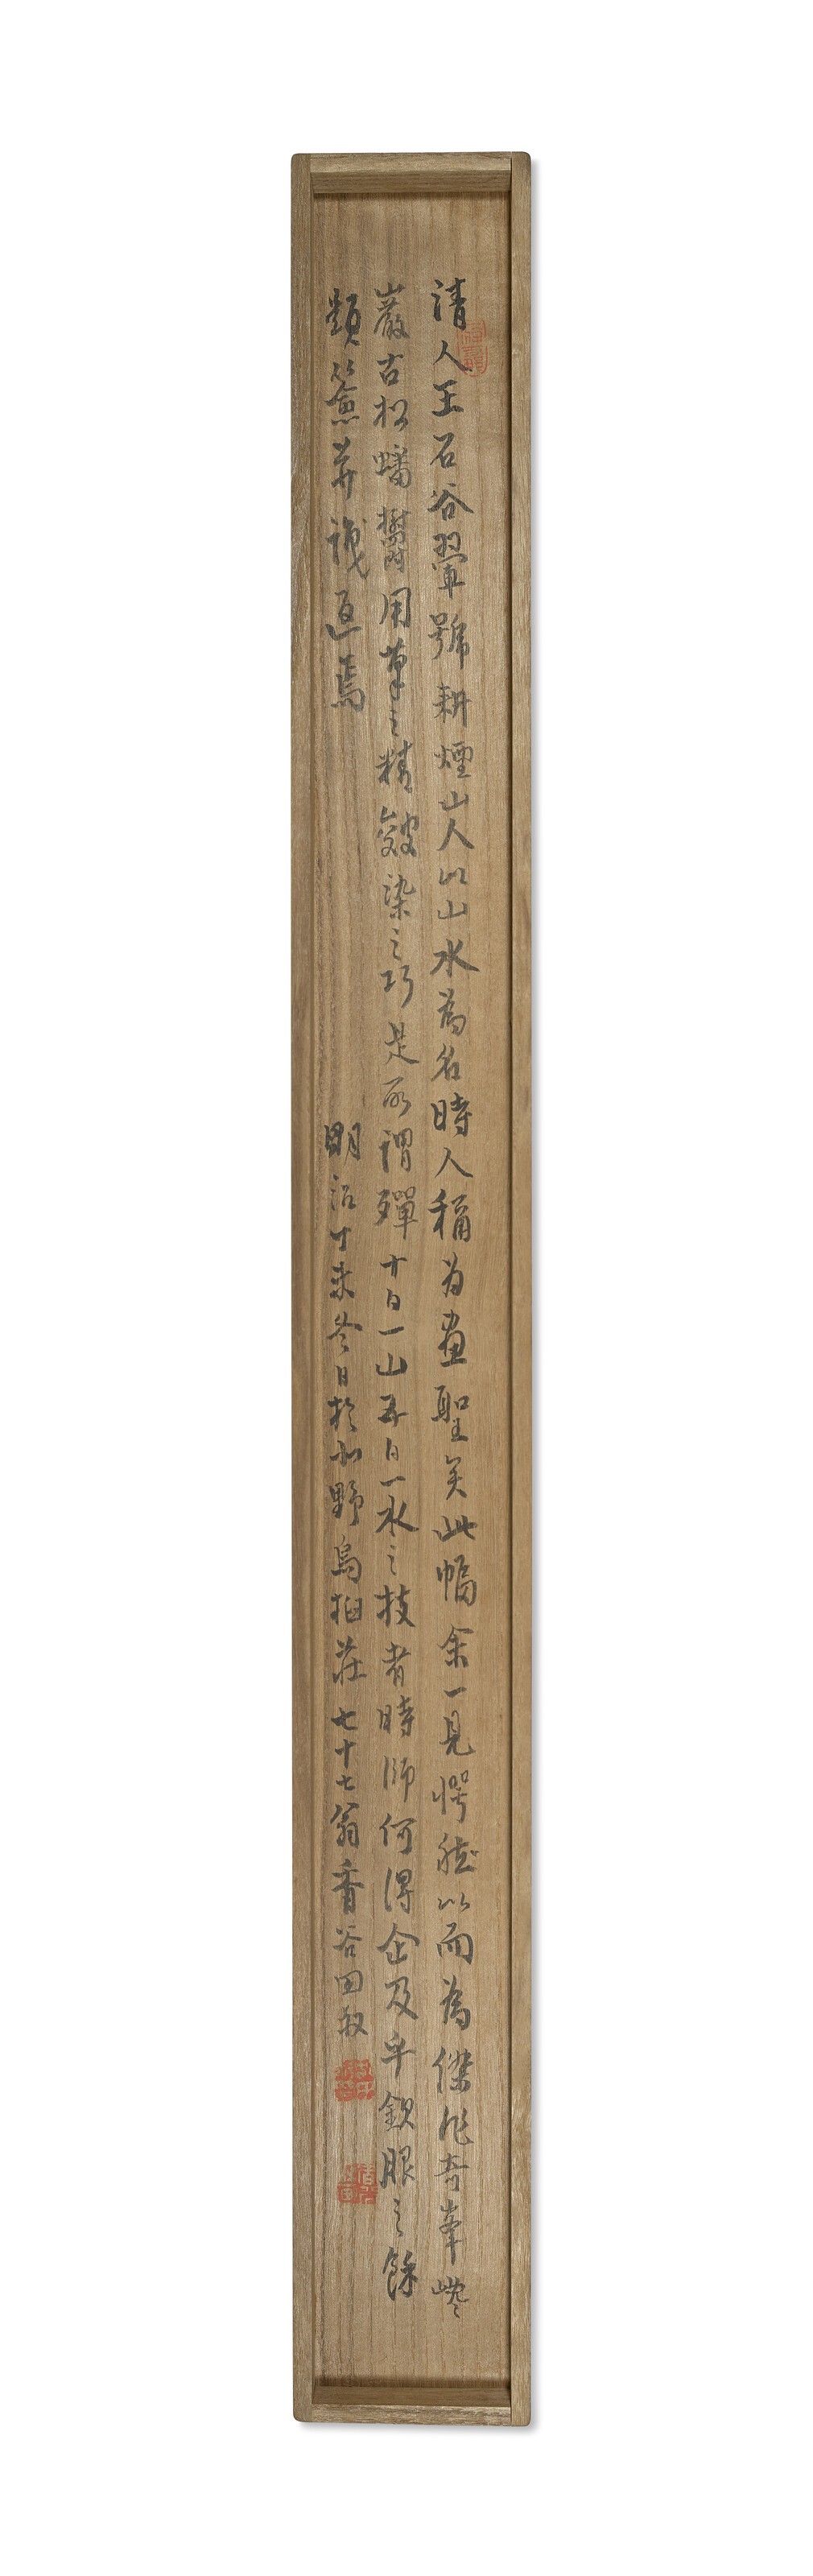 清人王石谷翬號耕煙山人以山水為名時人稱為畫聖矣此幅余一見愕然以而為傑作奇峯巉
巖古松蟠鬱用筆之精皴染之巧是所謂殫十日一山五日一水之技者時師何得企及乎欽眼之餘
題簽并識返焉
明治丁未冬日於北野烏柏莊七十七翁香谷田敘